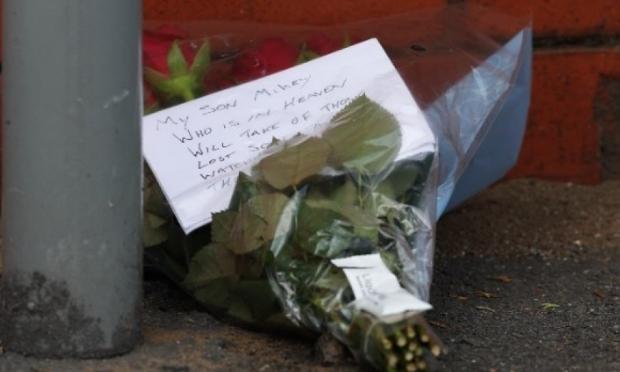 MY SON MIKEY
WHO IS IN HEAVEN
WILL TAKE OF THO
LOST SO
WATCH
TH